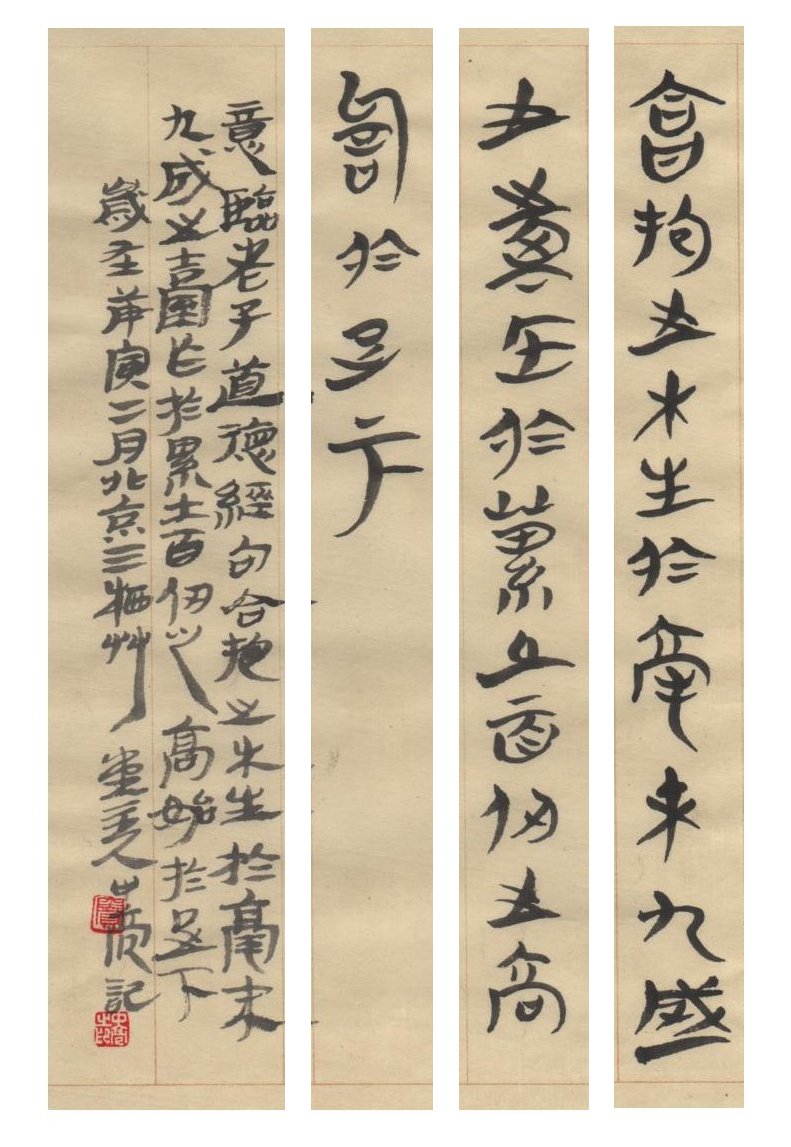 合抱之木生於毫末九成
之臺乍於蔂土百仞之高
始於足下
意臨老子道德經句合抱之木生於毫末
九成之臺乍於累土百仞之高始於足下
歲在庚寅二月北京三牺艸堂主人記